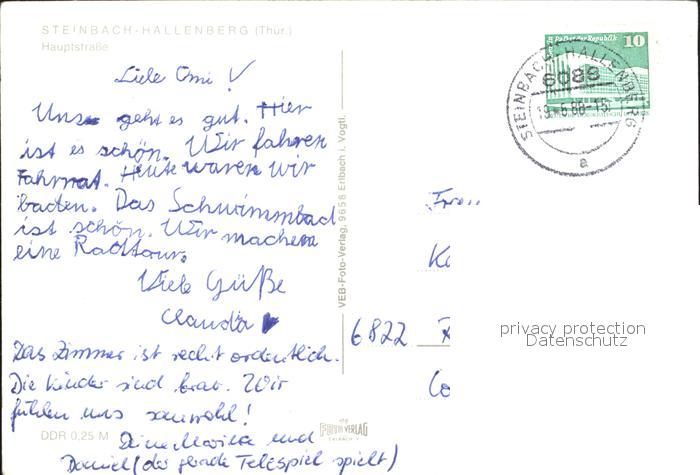 STEINBACH-HALLENBERG (Thür.)
Hauptstraße
Liebe Omi!
Uns geht es gut. Hier
ist es schön. Wir fahren
Fahrrat. Heute waren wir
baden. Das Schwimmbad
ist schön. Wir machen
eine Radtour.
Viele Güße
Claudia
Das Zimmer ist recht ordentlich.
Die Kinder sind brav. Wir
fühlen uns sauwohl!
Deine Marita und
Daniel (der gerade Telespiel spielt)
DDR 0,25 M
VEB-Foto-Verlag, 9658 Erlbach i. Vogtl.
FOTO VERLAG
Palast der Republik
10
STEINBACH-HALLENBERG
6088
a
6822
privacy protection
Datenschutz